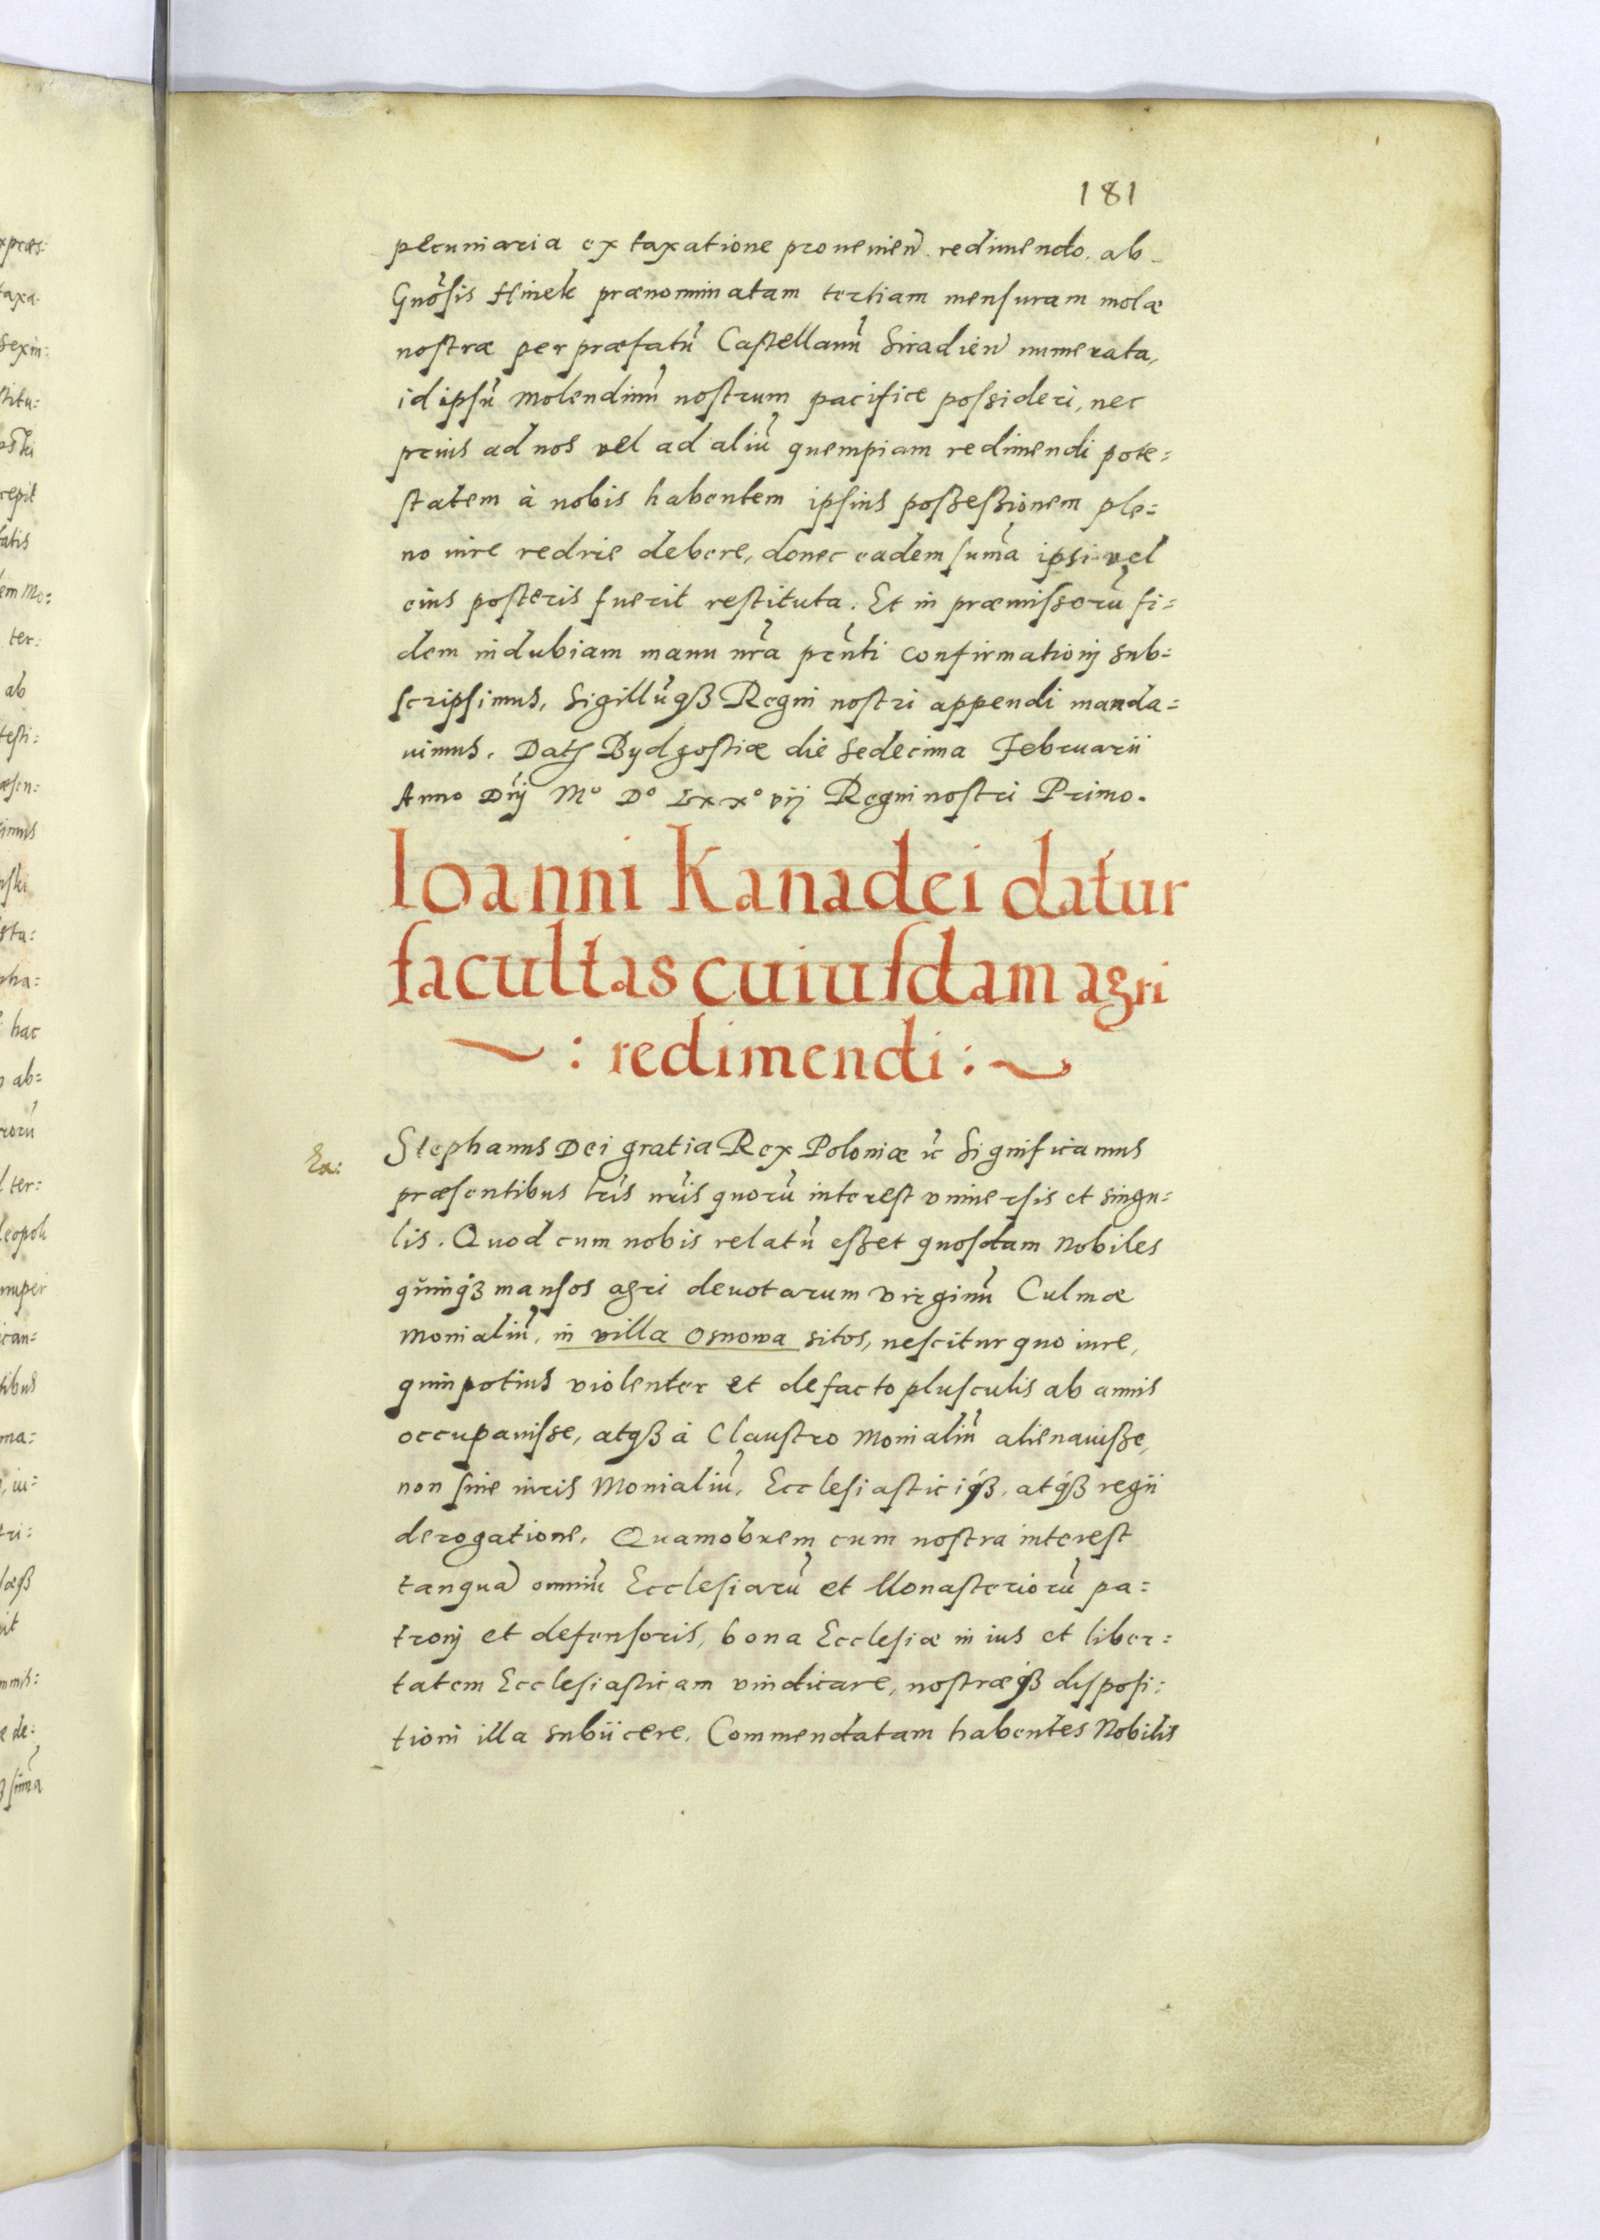 181
pecuniaria ex taxatione provenien̄. redimendo. ab
Gnōsis Hinek prænominatam tertiam mensuram molæ
nostræ per præfatū Castellanū Siradien̄ numerata,
id ipsū molendinū nostrum pacifice possideri, nec
prius ad nos vel ad aliū quempiam redimendi pote=
statem à nobis habentem ipsius possessionem ple=
no iure redire debere, donec eadem sum̄a ipsi vel
eius posteris fuerit restituta. Et in præmissorū fi=
dem indubiam manu nr̄a prn̄ti confirmationi sub=
scripsimus, Sigillūqȝ Regni nostri appendi manda=
uimus. Datȝ Bydgostiæ die sedecima Februarii
Anno Dn̄j Mº Dº Lxxº vij Regni nostri Primo.
Ioanni Kanadei datur
facultas cuiusdam agri
: redimendi :
Stephanus Dei gratia Rex Poloniæ ꝛc Significamus
præsentibus lr̄is nr̄is quorū interest vniuersis et singu=
lis. Quod cum nobis relatū esset quosdam Nobiles
quinqȝ mansos agri deuotarum virginū Culmæ
Monialiū, in villa Osnowa sitos, nescitur quo iure,
quin potius violenter et de facto plusculis ab annis
occupauisse, atqȝ à Claustro Monialiū alienauisse,
non sine iuris Monialiū, Ecclesiasticiqȝ, atqȝ regii
derogatione. Quamobrem cum nostra interest
tanqua᷄ omniū Ecclesiarū et Monasteriorū pa=
tronj et defensoris, bona Ecclesiæ in ius et liber=
tatem Ecclesiasticam vindicare, nostræqȝ disposi=
tioni illa subiicere. Commendatam habentes Nobilis